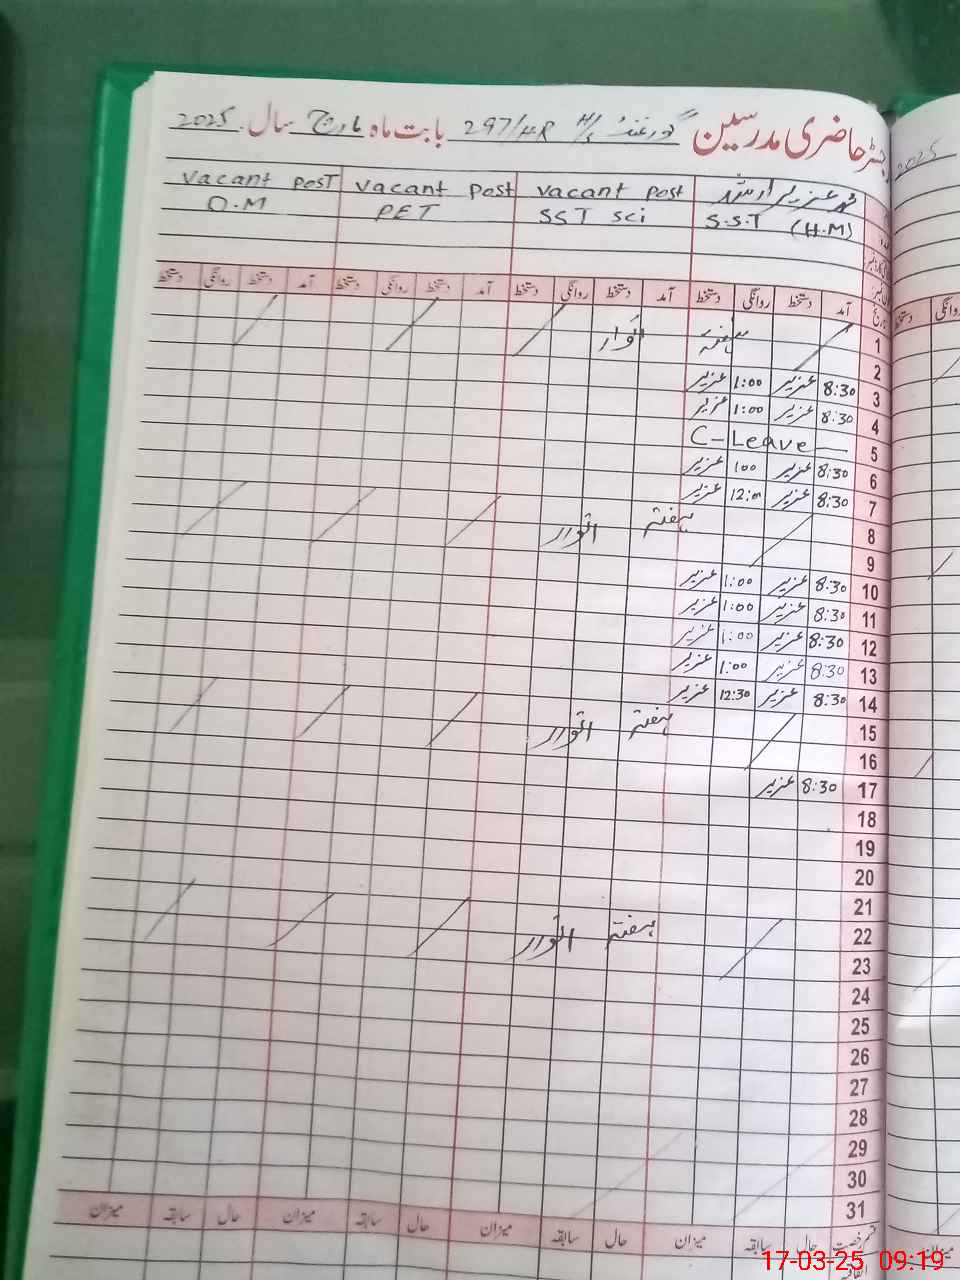 رجسٹر حاضری مدرسین گورنمنٹ H/S 297/HR بابت ماہ مارچ سال 2025
محمد عزیر ارشد vacant post vacant post vacant post
S.S.T (H.M) SST sci PET D.M
تاریخ آمد دستخط روانگی دستخط آمد دستخط روانگی دستخط آمد دستخط روانگی دستخط آمد دستخط روانگی دستخط
1 ہفتہ اتوار
2
3 8:30 عزیر 1:00 عزیر
4 8:30 عزیر 1:00 عزیر
5 C-Leave
6 8:30 عزیر 1:00 عزیر
7 8:30 عزیر 12:00 عزیر
8 ہفتہ اتوار
9
10 8:30 عزیر 1:00 عزیر
11 8:30 عزیر 1:00 عزیر
12 8:30 عزیر 1:00 عزیر
13 8:30 عزیر 1:00 عزیر
14 8:30 عزیر 12:30 عزیر
15 ہفتہ اتوار
16
17 8:30 عزیر
18
19
20
21
22 ہفتہ اتوار
23
24
25
26
27
28
29
30
31
قسم رخصت حال سابقہ میزان حال سابقہ میزان حال سابقہ میزان حال سابقہ میزان
2025
17-03-25 09:19